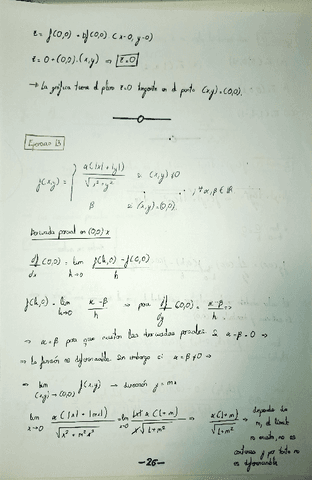 z = f(0,0) + ∇f(0,0) (x-0, y-0)
z = 0 + (0,0)·(x,y) ⇒ z=0
→ La gráfica tiene el plano z=0 tangente en el punto (x,y)=(0,0).
Ejercicio 13
f(x,y) = { α(|x|+|y|) / √x²+y² si (x,y)≠0
β si (x,y)=(0,0). ; ∀ α,β ∈ ℝ
Derivada parcial en (0,0) x
df/dx (0,0) = lim h→0 f(h,0) - f(0,0) / h
f(h,0) = lim h→0 α-β / h ⇒ para df/dy (0,0) = α-β / h ⇒
⇒ α=β para que existan las derivadas parciales si α-β=0 ⇒
⇒ la función es diferenciable. Sin embargo si α=β≠0 ⇒
⇒ lim (x,y)→(0,0) f(x,y) → dirección y = mx
lim x→0 α(|x|+|mx|) / √x²+m²x² = lim x→0 |x| α(1+m) / x√1+m² ⇒ α(1+m) / √1+m² → depende de
m, el límite
no existe, no es
continua y por tanto no
es diferenciable
-26-